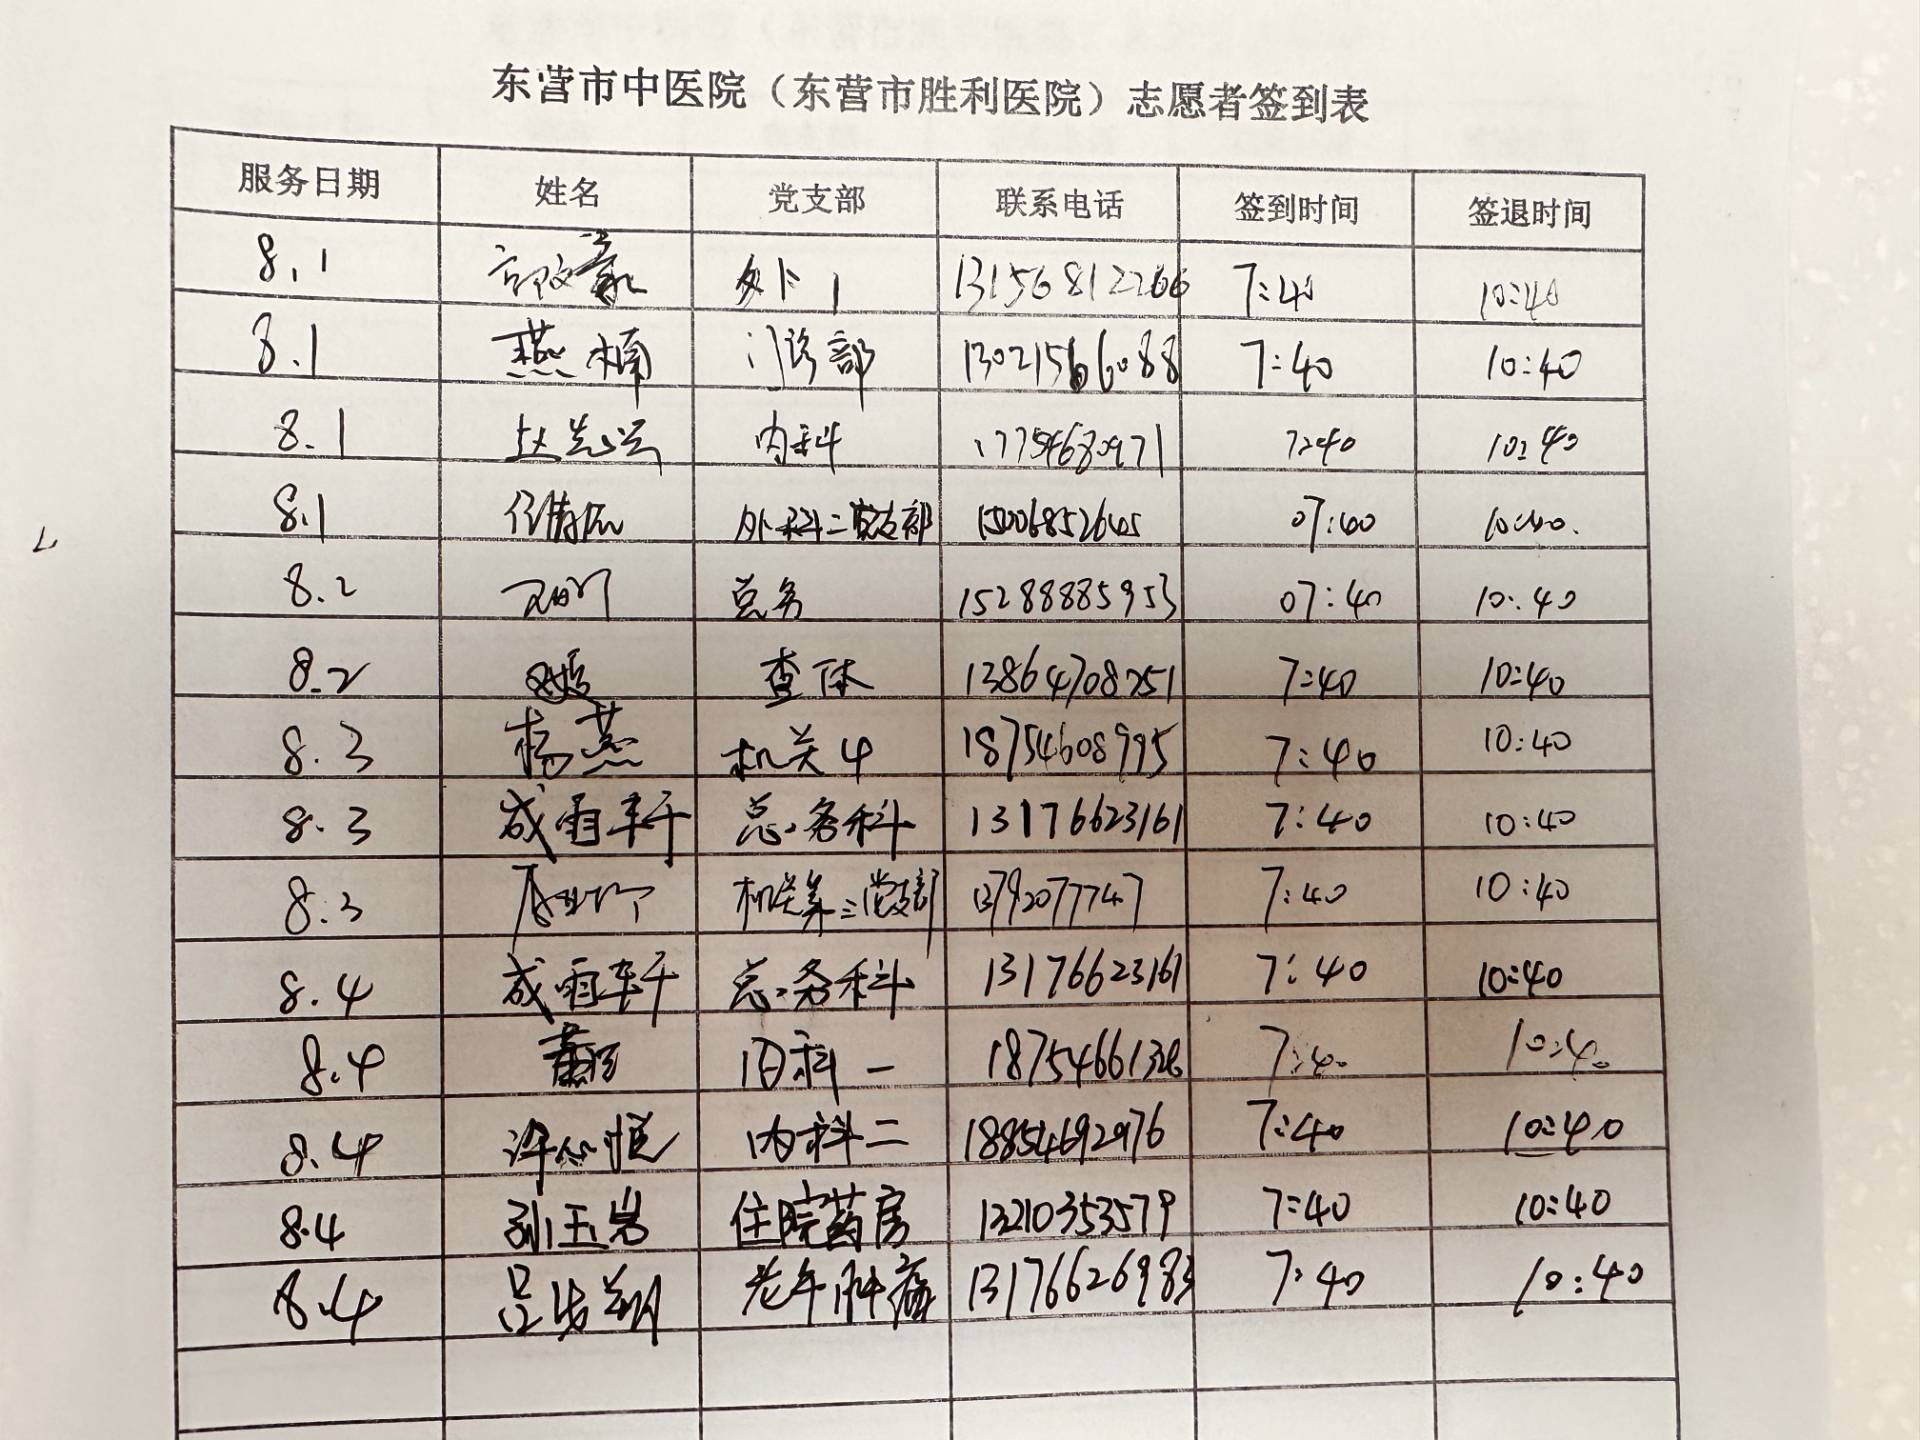 东营市中医院（东营市胜利医院）志愿者签到表
服务日期 姓名 党支部 联系电话 签到时间 签退时间
8.1 外卜1 13156812266 7:40 10:40
8.1 燕楠 门诊部 13021566088 7:40 10:40
8.1 赵志兴 内科 17754680971 7:40 10:40
8.1 外科二党支部 15006852645 07:40 10:40.
8.2 总务 15288885953 07:40 10:40
8.2 查体 13864708251 7:40 10:40
8.3 杨燕 机关4 18754608995 7:40 10:40
8.3 成雨轩 总务科 13176623161 7:40 10:40
8.3 机关第三党支部 13792077747 7:40 10:40
8.4 成雨轩 总务科 13176623161 7:40 10:40
8.4 内科一 18754661328 7:40 10:40
8.4 许心恒 内科二 18854692976 7:40 10:40
8.4 孙玉岩 住院药房 13210353579 7:40 10:40
8.4 吕 翔 老年肿瘤 13176626983 7:40 10:40